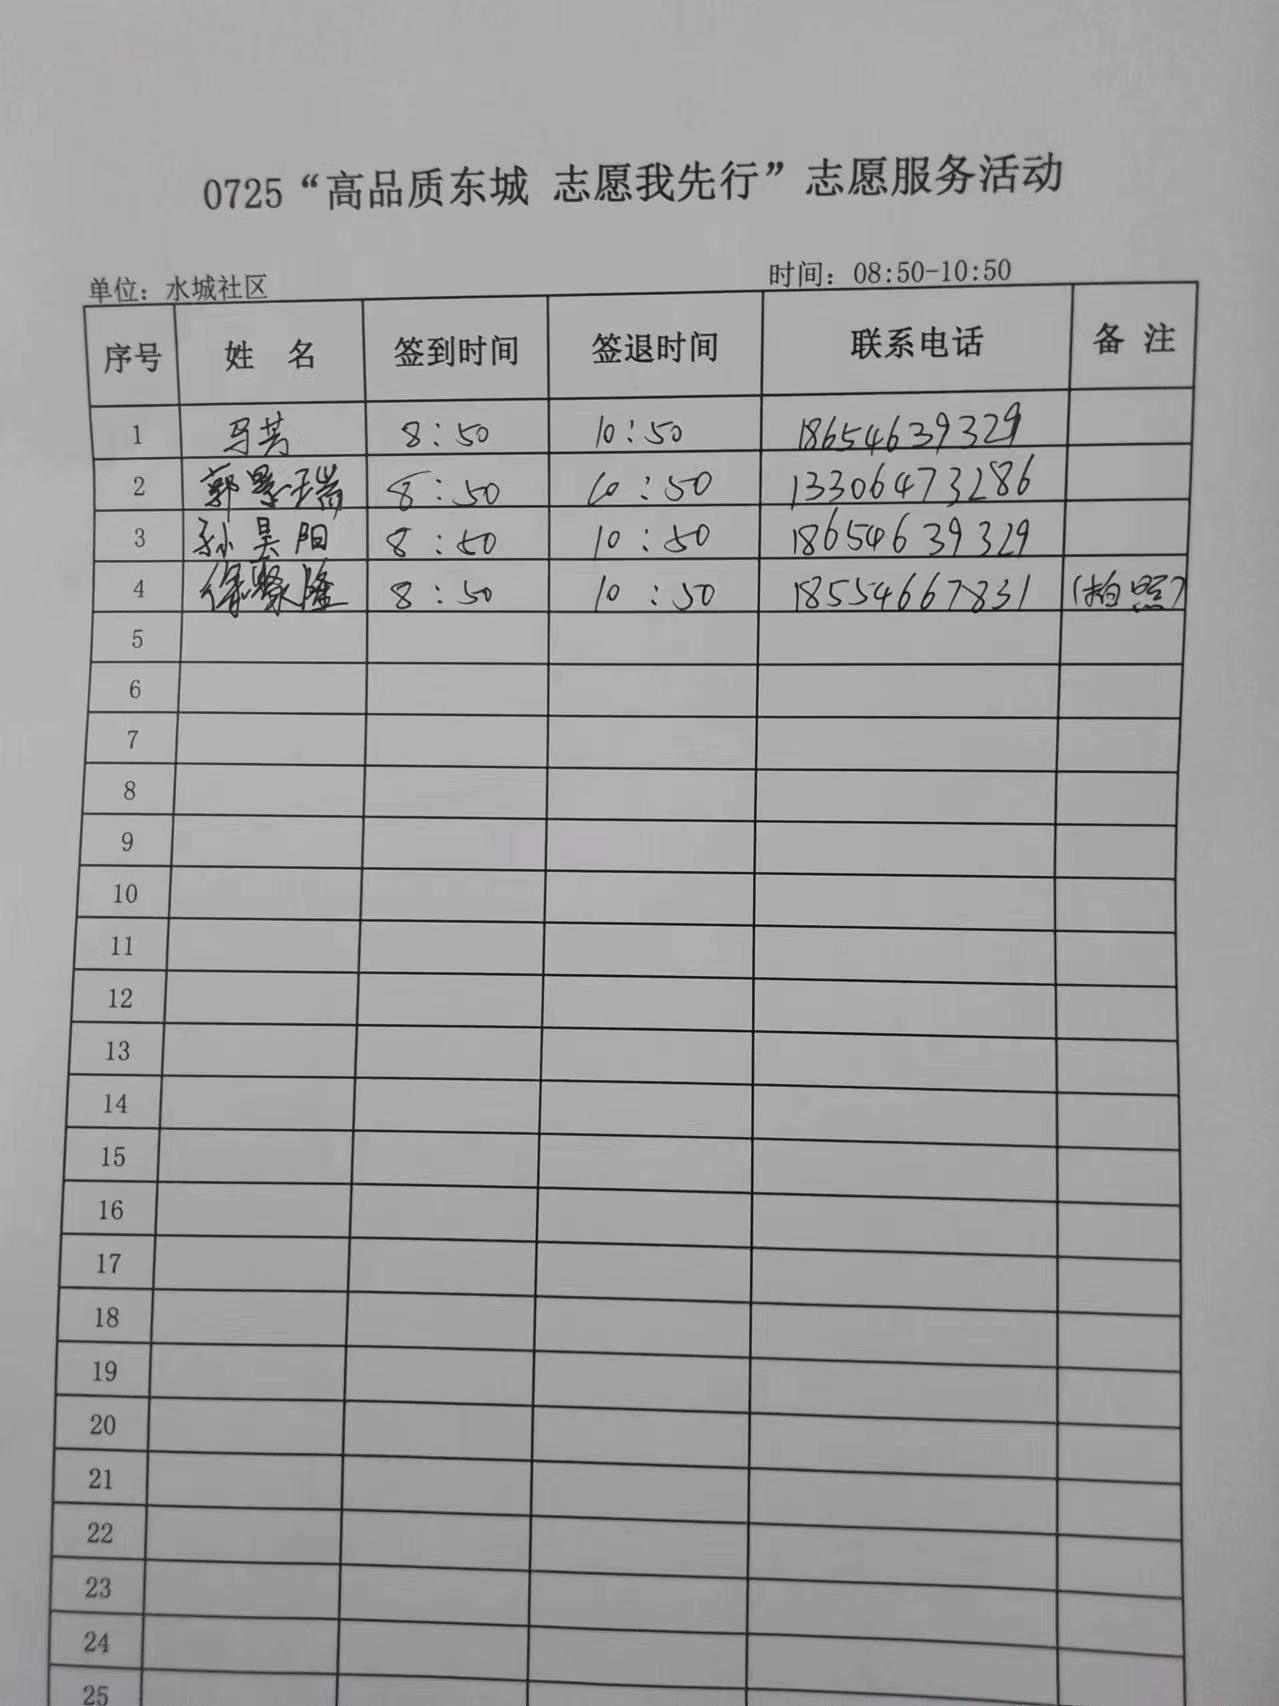 0725“高品质东城 志愿我先行”志愿服务活动
单位：水城社区 时间：08:50-10:50
序号 姓 名 签到时间 签退时间 联系电话 备 注
1 马芳 8:50 10:50 18654639329
2 郭景瑞 8:50 10:50 13306473286
3 孙昊阳 8:50 10:50 18654639329
4 8:50 10:50 18554667831 (拍照)
5
6
7
8
9
10
11
12
13
14
15
16
17
18
19
20
21
22
23
24
25